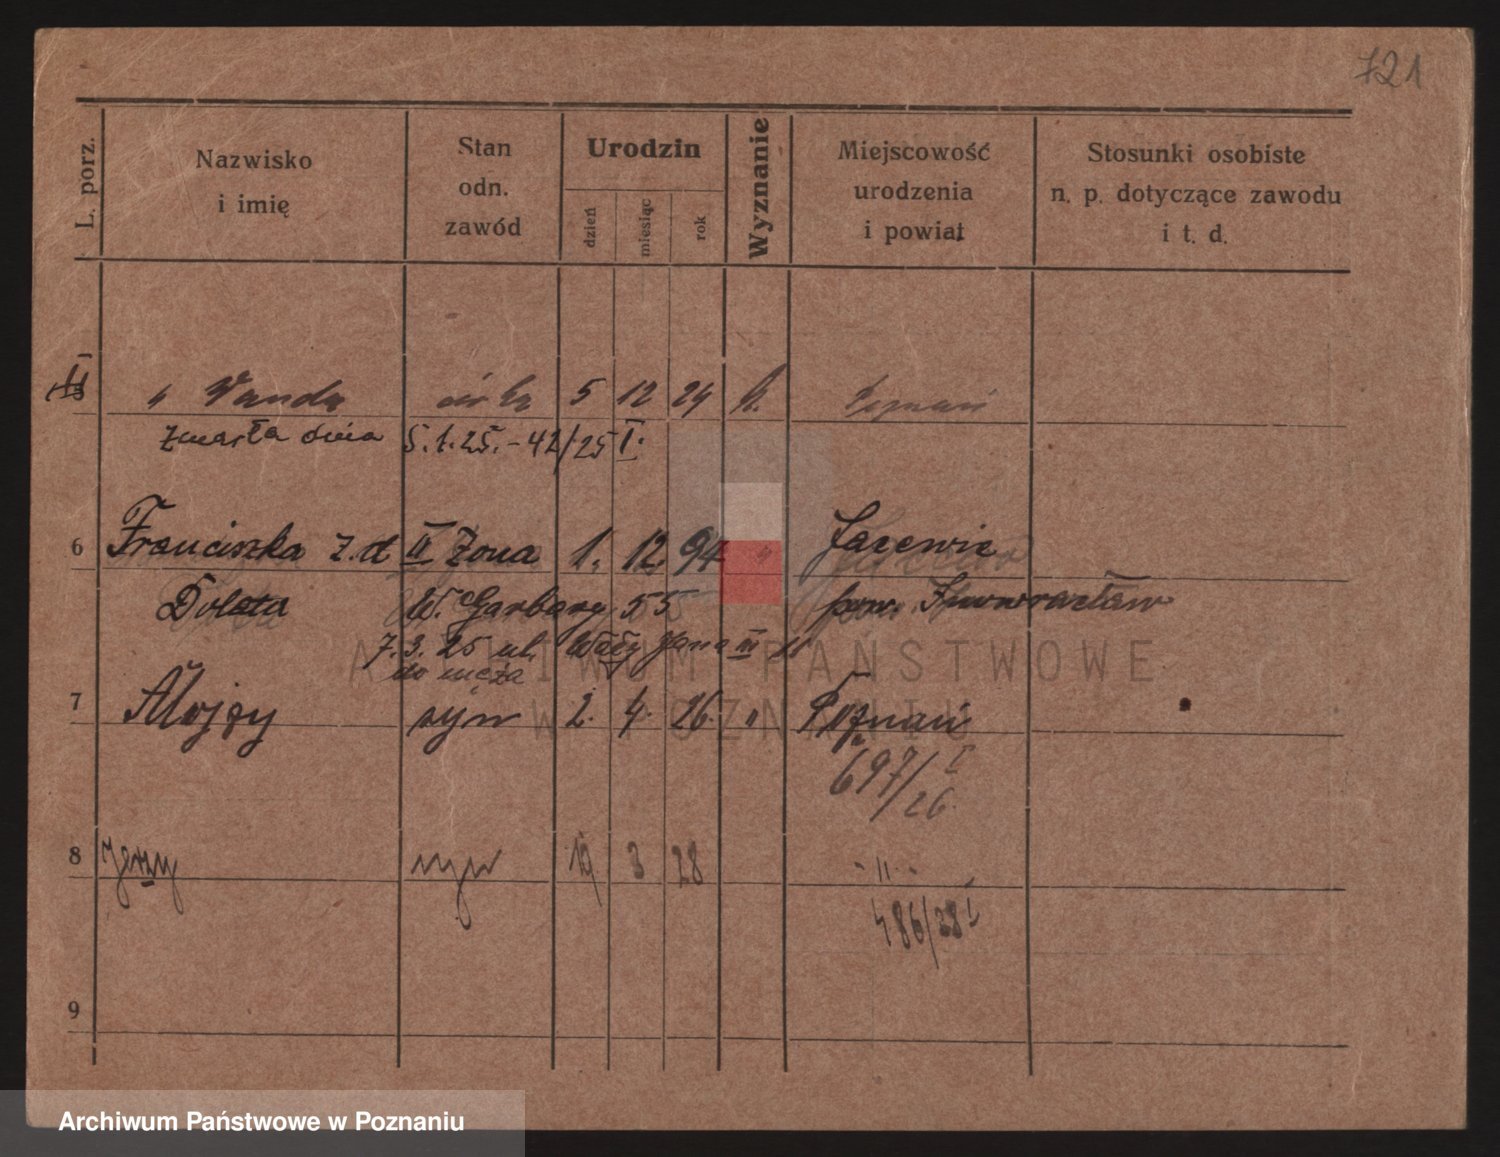 721
L. porz.
Nazwisko
i imię
Stan
odn.
zawód
Urodzin
dzień
miesiąc
rok
Wyznanie
Miejscowość
urodzenia
i powiat
Stosunki osobiste
n. p. dotyczące zawodu
i t. d.
" Wanda córka 5 12 24 k. Poznań
zmarła dnia 5.1.25. - 42/25 I.
6 Franciszka z.d II żona 1. 12. 94 " Jacewie
Doleta W. Garbary 55 pow. Inowrocław
7.3.25 ul. Wały Jana III
do męża
7 Alojzy syn 2. 4. 26. " Poznań
697/26 I
8 Jerzy syn 19 3 28 - " -
486/28 I
9
ARCHIWUM PAŃSTWOWE
W POZNANIU
Archiwum Państwowe w Poznaniu